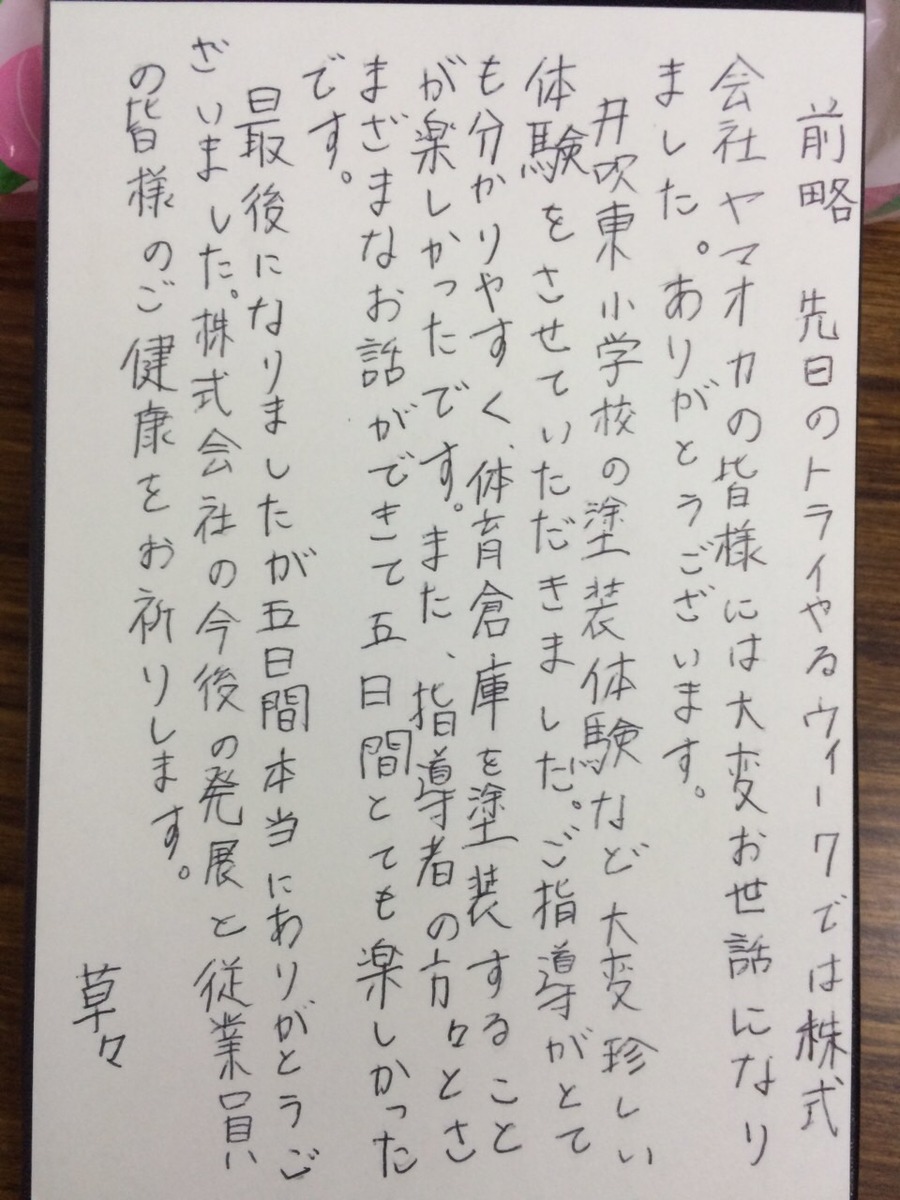 前略　先日のトライやるウィークでは株式
会社ヤマオカの皆様には大変お世話になり
ました。ありがとうございます。
井吹東小学校の塗装体験など大変珍しい
体験をさせていただきました。ご指導がとて
も分かりやすく、体育倉庫を塗装すること
が楽しかったです。また、指導者の方々とさ
まざまなお話ができて五日間とても楽しかった
です。
最後になりましたが五日間本当にありがとうご
ざいました。株式会社の今後の発展と従業員
の皆様のご健康をお祈りします。
草々